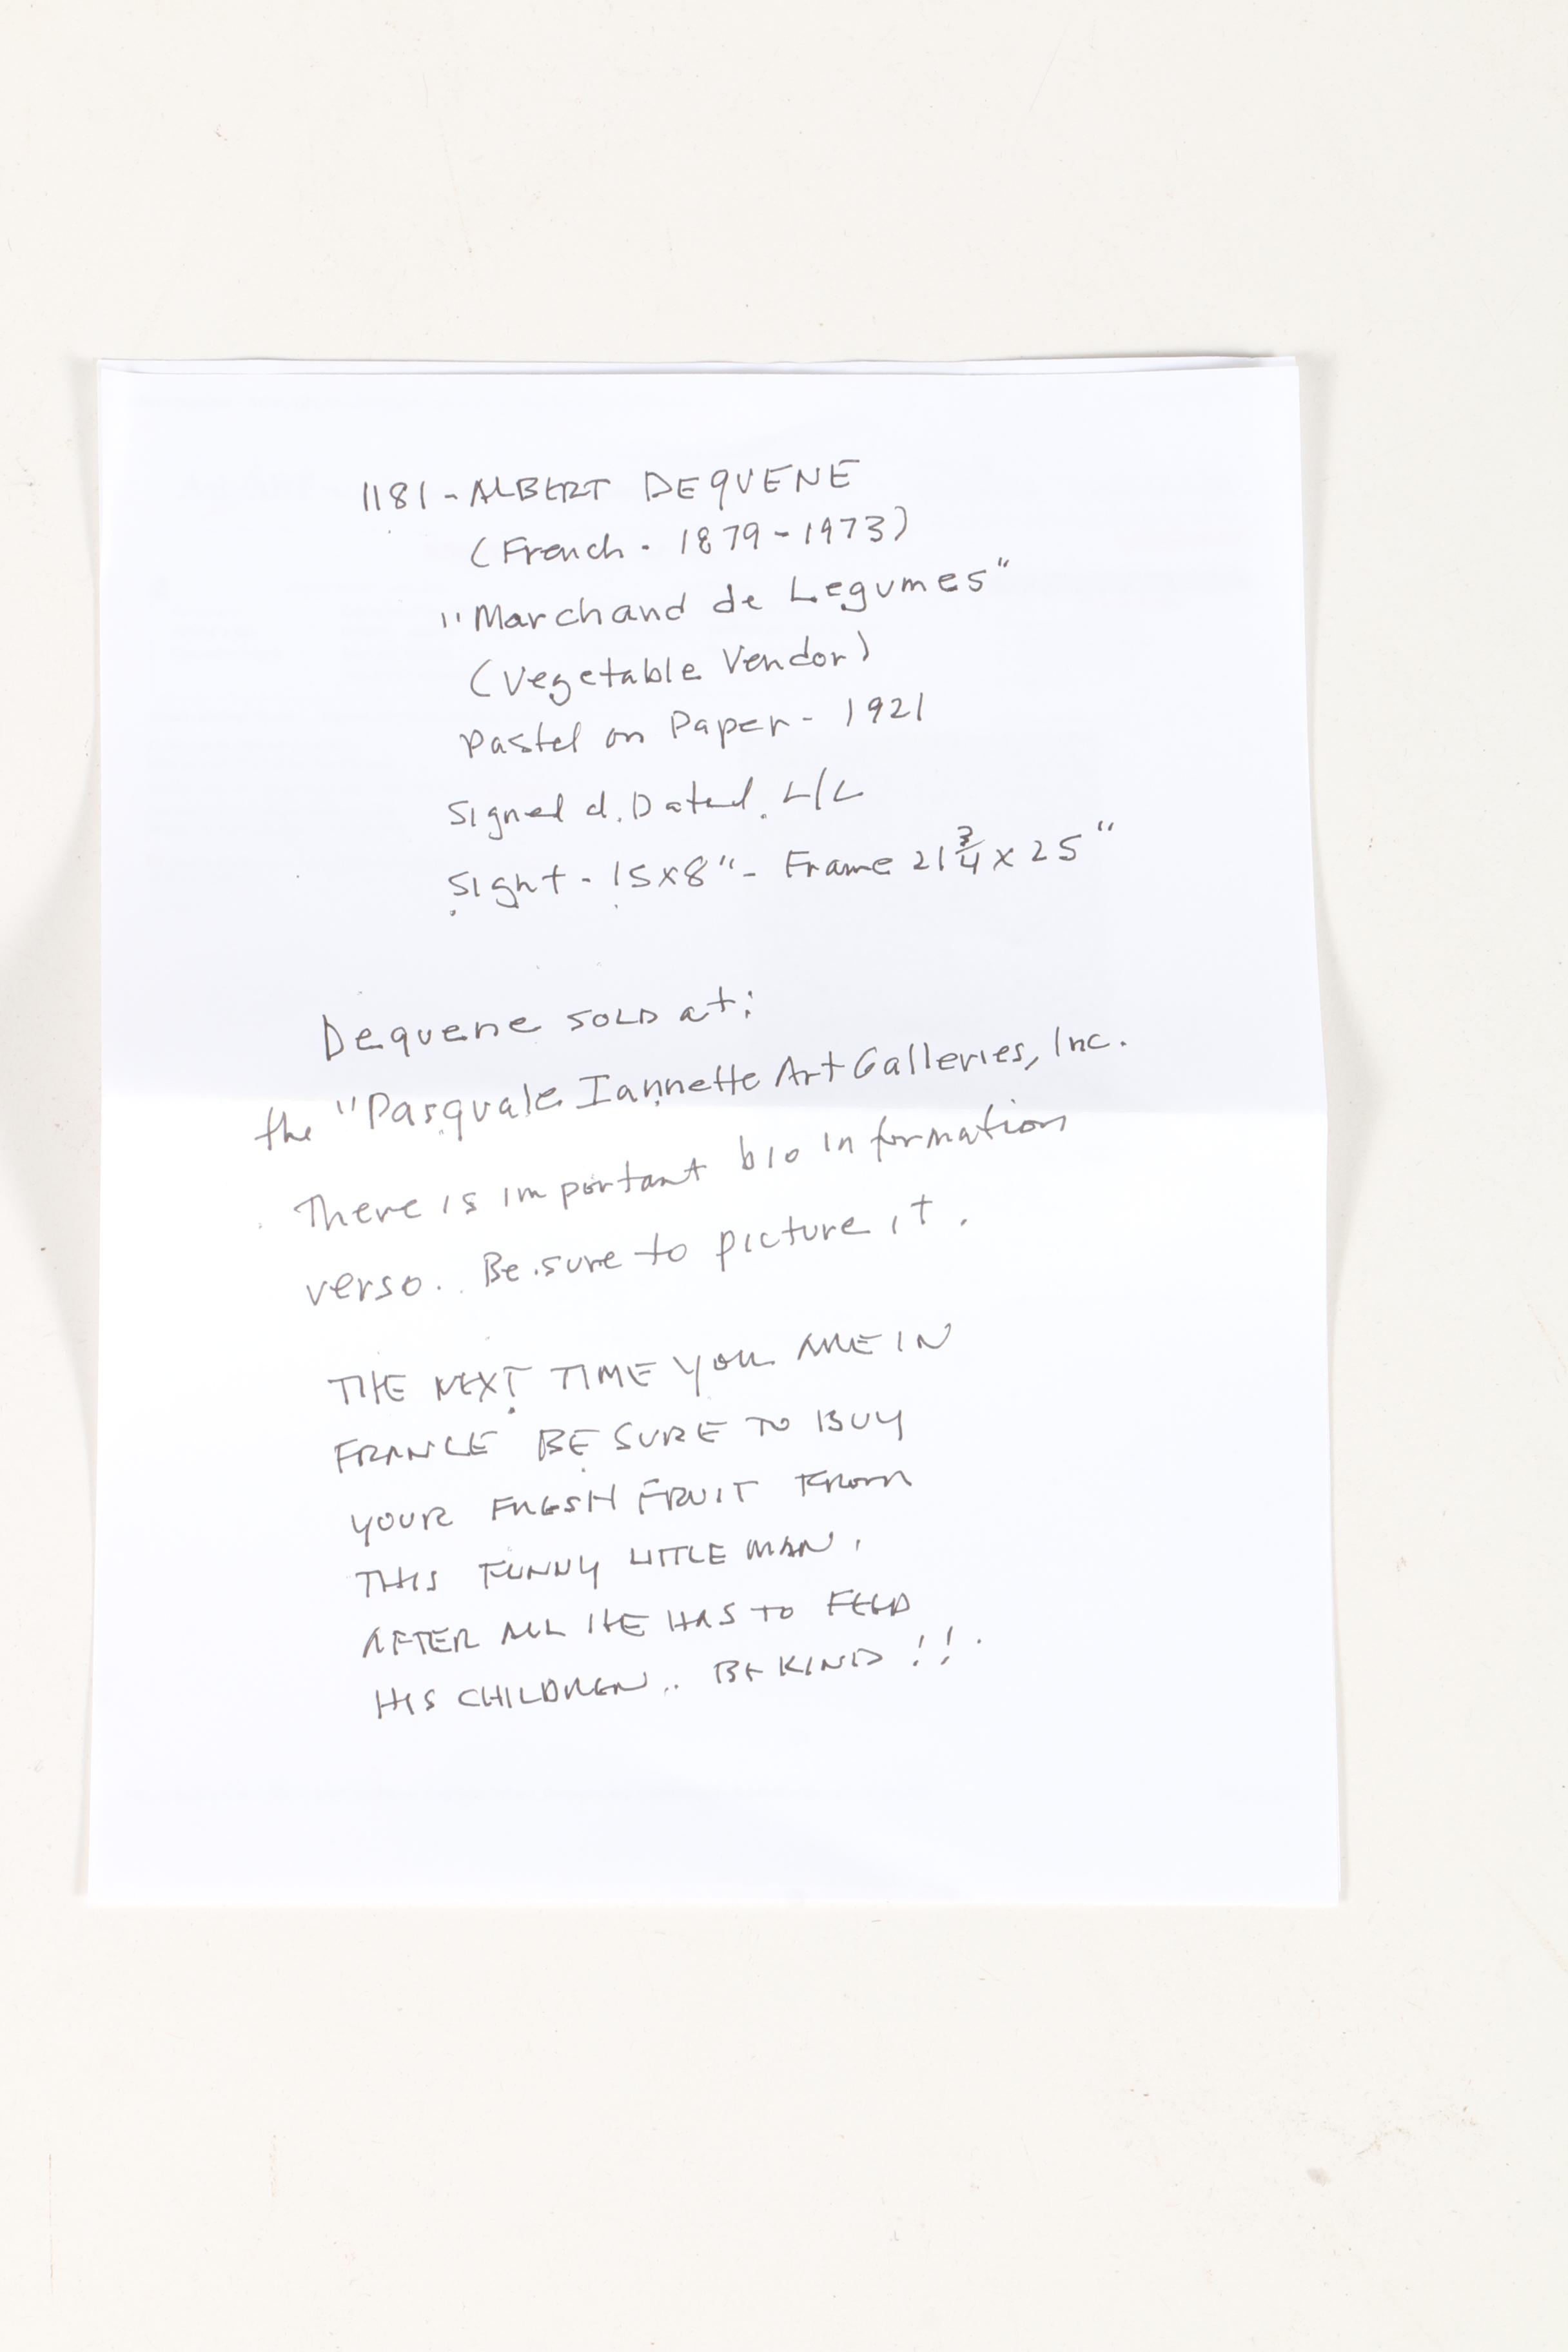 1181 - ALBERT DEQUENE
(French - 1879 - 1973)
"Marchand de Legumes"
(Vegetable Vendor)
Pastel on Paper - 1921
Signed d. Dated. L/L
Sight - 15x8" - Frame 21 3/4 x 25"
Dequene SOLD at:
the "Pasquale Iannette Art Galleries, Inc.
There is important bio information
verso.. Be sure to picture it.
THE NEXT TIME YOU ARE IN
FRANCE BE SURE TO BUY
YOUR FRESH FRUIT FROM
THIS FUNNY LITTLE MAN.
AFTER ALL HE HAS TO FEED
HIS CHILDREN.. BE KIND!!.